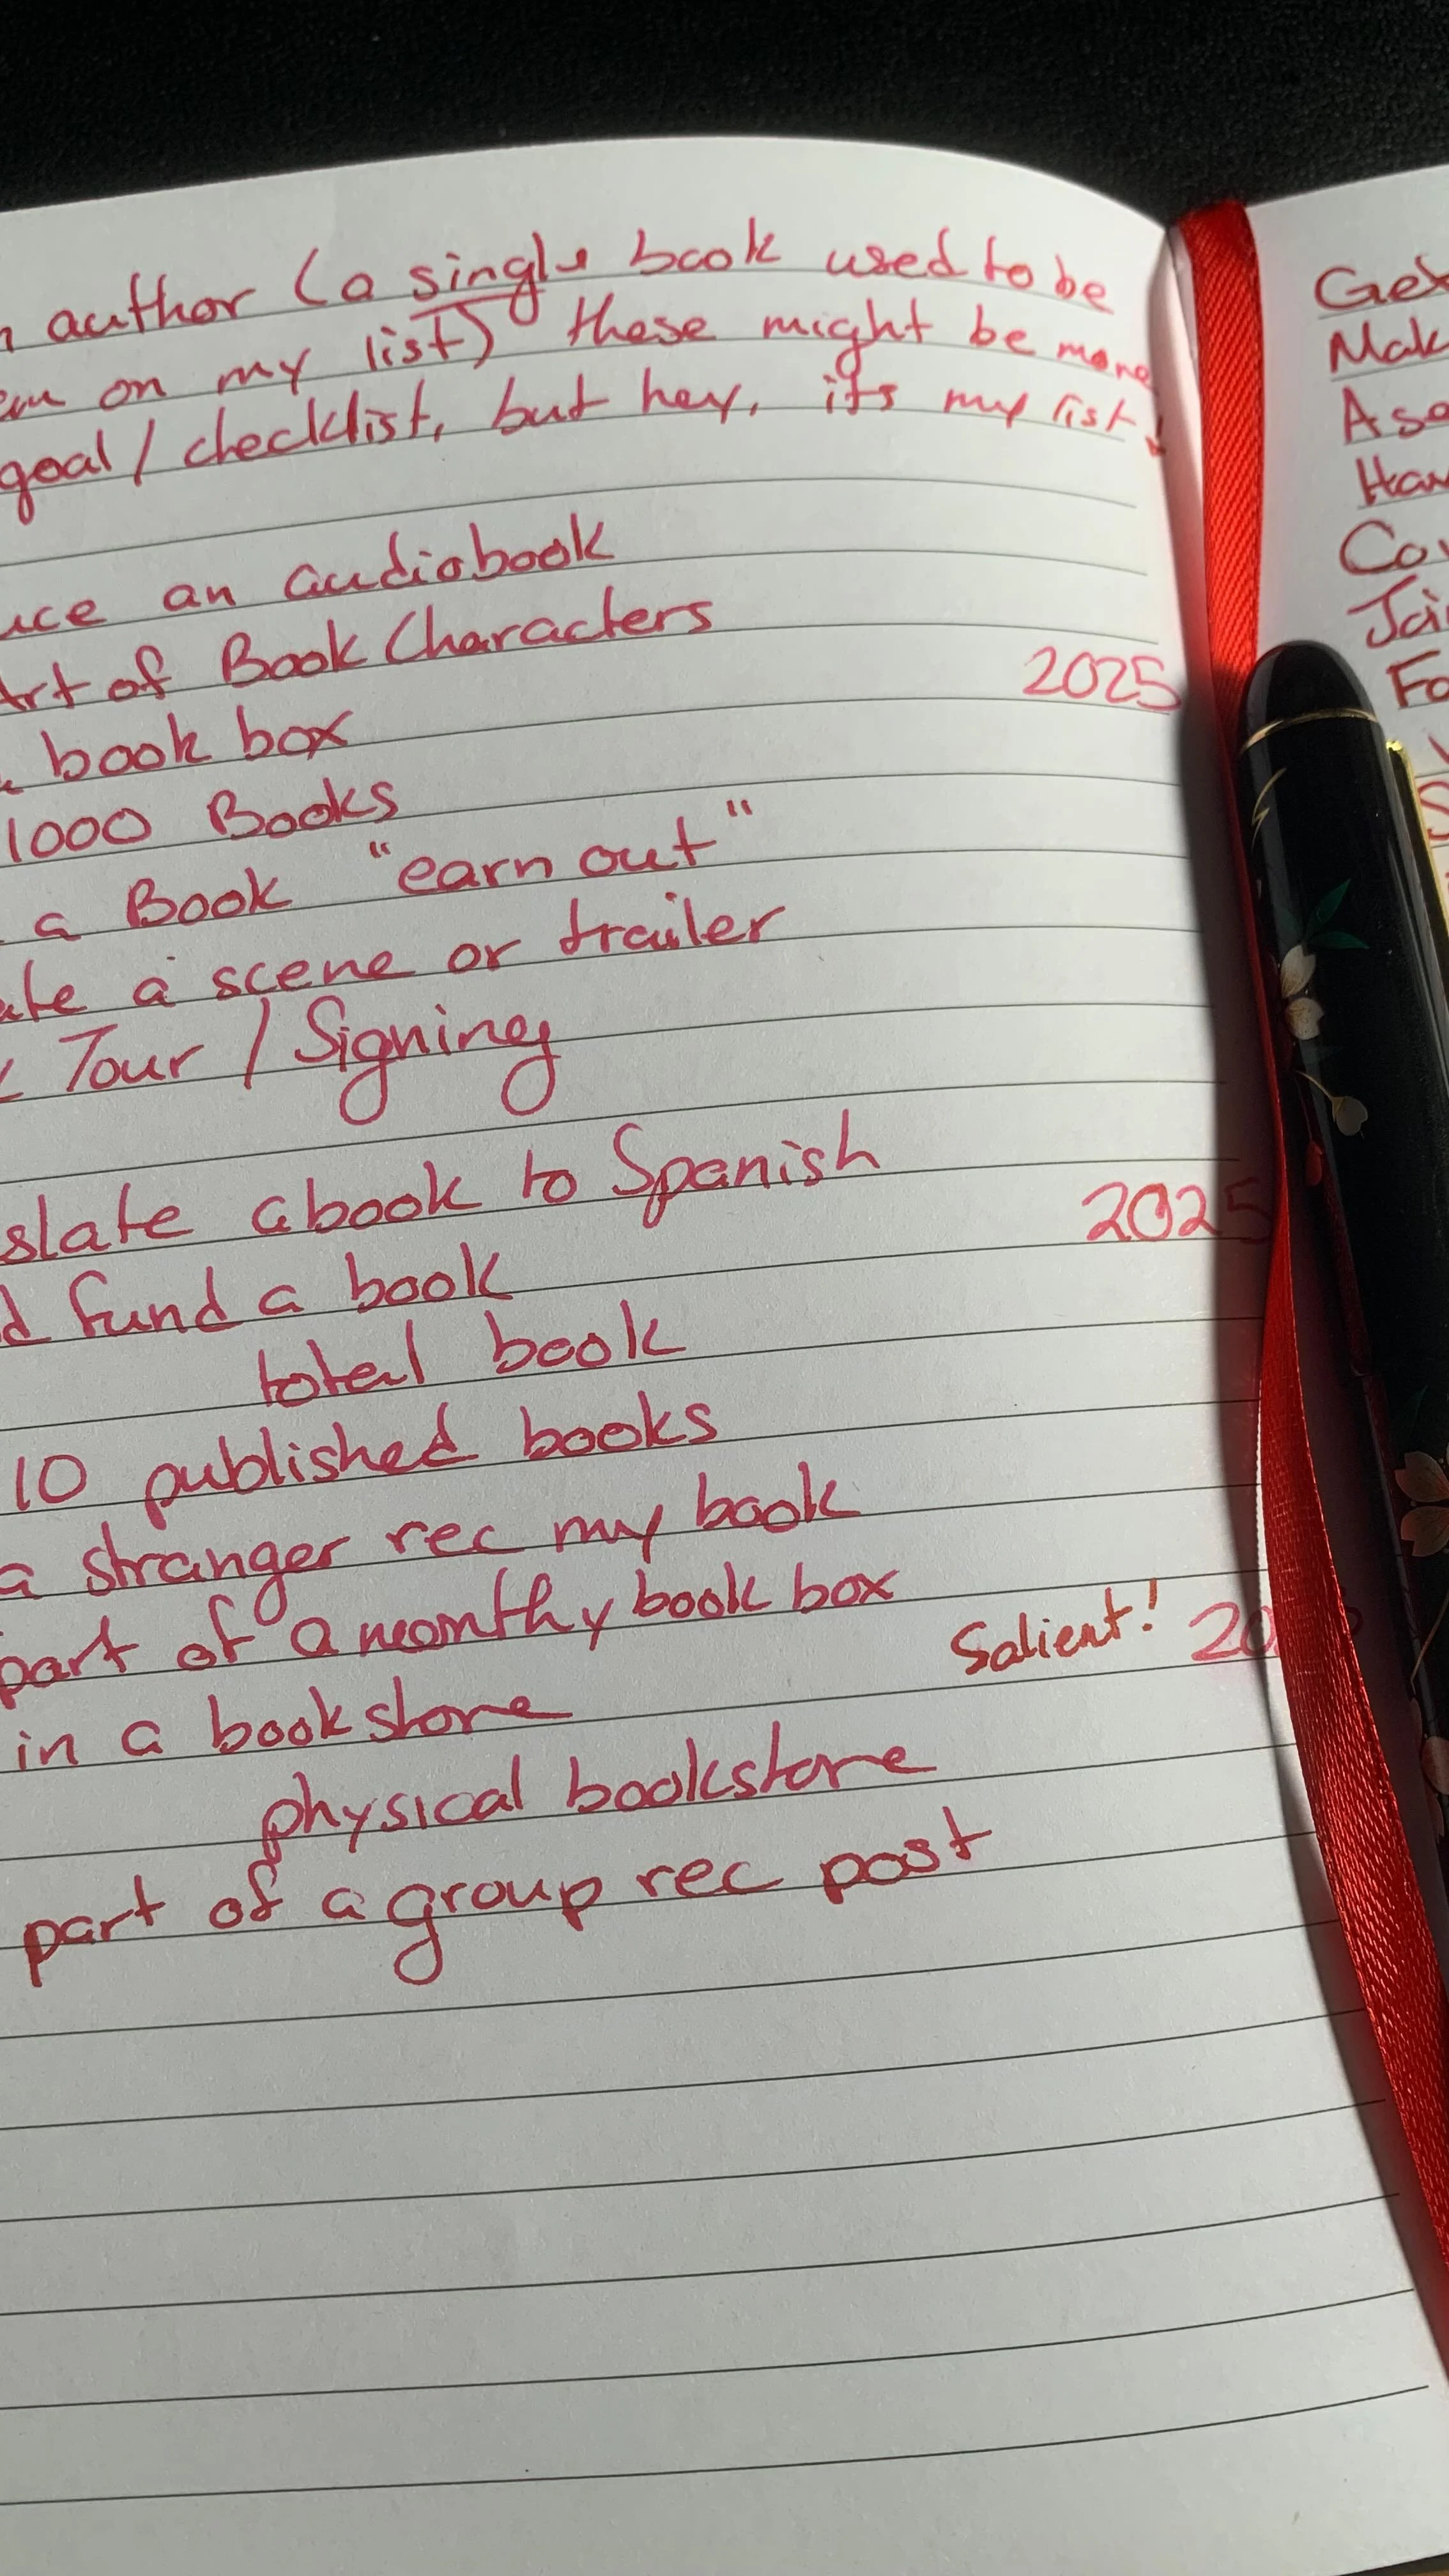 author (a single book used to be
on my list) these might be more
goal / checklist, but hey, it's my list!
an audiobook
Art of Book Characters
2025
book box
1000 Books
a Book "earn out"
a scene or trailer
Tour / Signing
a book to Spanish
2025
fund a book
total book
10 published books
a stranger rec my book
part of a monthy book box
Salient! 20
in a bookstore
physical bookstore
part of a group rec post
Get